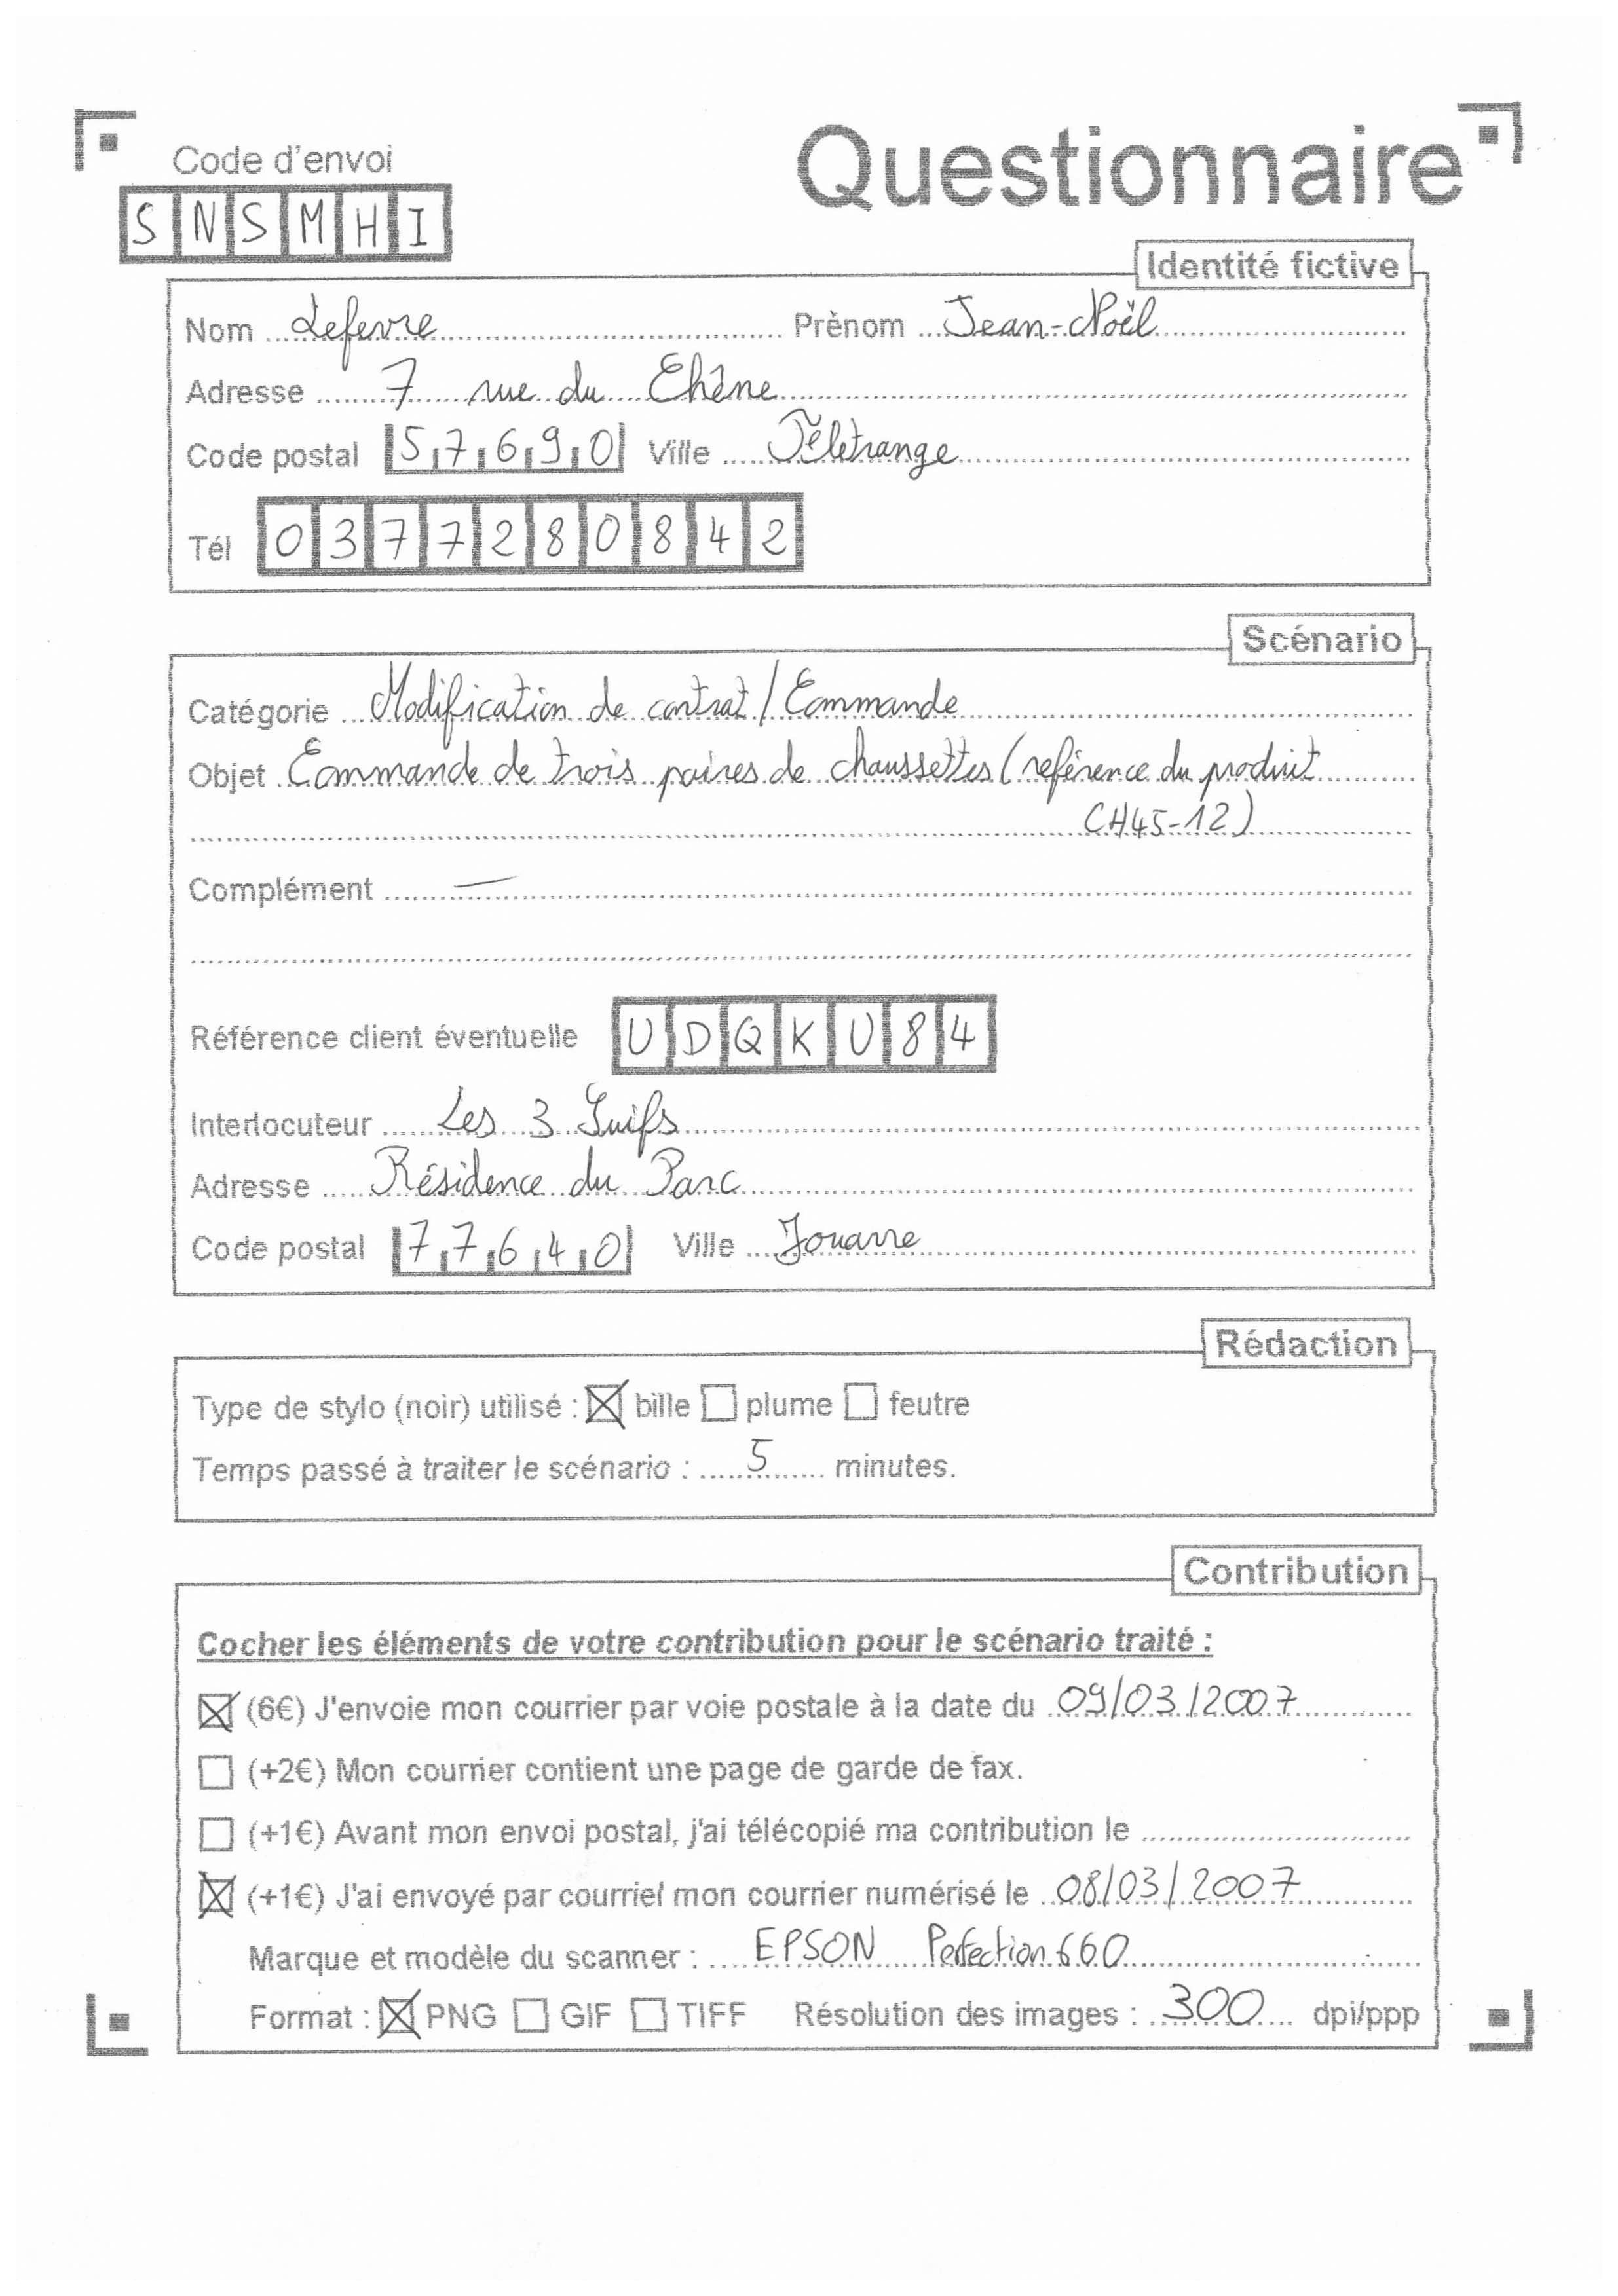 Code d'envoi
Questionnaire
S N S M H I
Identité fictive
Nom Lefevre Prènom Jean-Noël
Adresse 7 rue du Chêne
Code postal 57690 Ville
Tél 0377280842
Scénario
Catégorie Modification de contrat / Commande
Objet Commande de trois paires de chaussettes (reférence du produit
CH45-12)
Complément —
Référence client éventuelle U D Q K U 8 4
Interlocuteur Les 3 Suifs
Adresse Résidence du Parc
Code postal 77640 Ville Jouarre
Rédaction
Type de stylo (noir) utilisé : ☒ bille ☐ plume ☐ feutre
Temps passé à traiter le scénario : 5 minutes.
Contribution
Cocher les éléments de votre contribution pour le scénario traité :
☒ (6€) J'envoie mon courrier par voie postale à la date du 09/03/2007
☐ (+2€) Mon courrier contient une page de garde de fax.
☐ (+1€) Avant mon envoi postal, j'ai télécopié ma contribution le
☒ (+1€) J'ai envoyé par courriel mon courrier numérisé le 08/03/2007
Marque et modèle du scanner : EPSON Perfection 660
Format : ☒ PNG ☐ GIF ☐ TIFF Résolution des images : 300 dpi/ppp